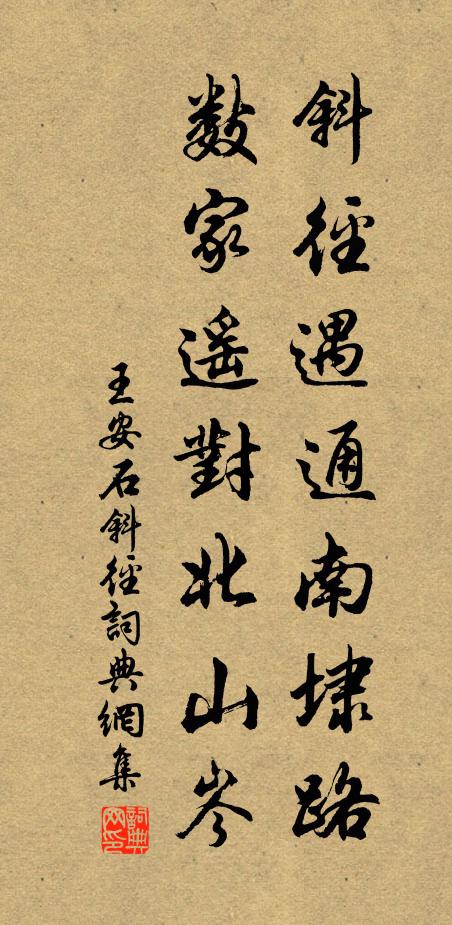 斜徑遇通南埭路
數家遥對北山岑
王安石斜徑詞典網集
詞典网印